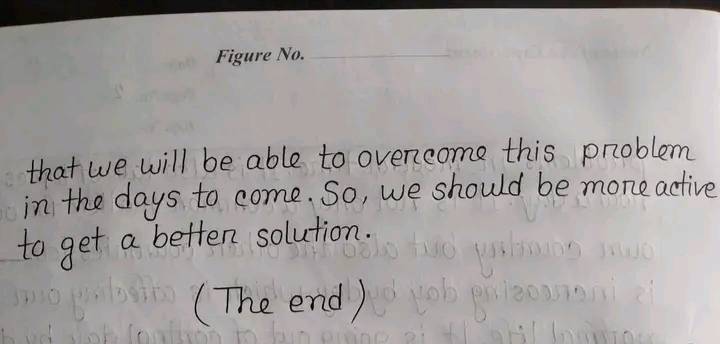 Figure No.
that we will be able to overcome this problem
in the days to come. So, we should be more active
to get a better solution.
(The end)